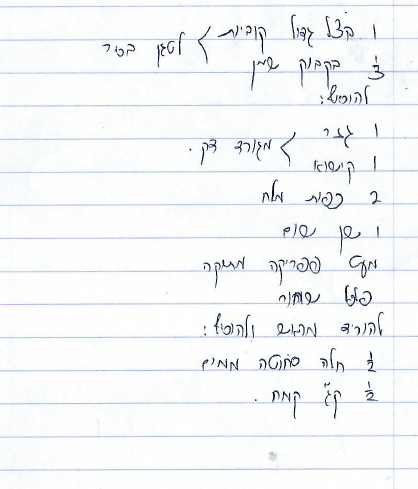 1 בצל גדול קוביות > לטגן בסיר
⅓ בקבוק שמן
להוסיף:
1 גזר > מגורד דק.
1 קישוא
2 כפות מלח
1 שן שום
מעט פפריקה מתוקה
פלפל שחור
להוריד מהאש ולהוסיף:
½ חלה סחוטה ממים
½ ק"ג קמח.